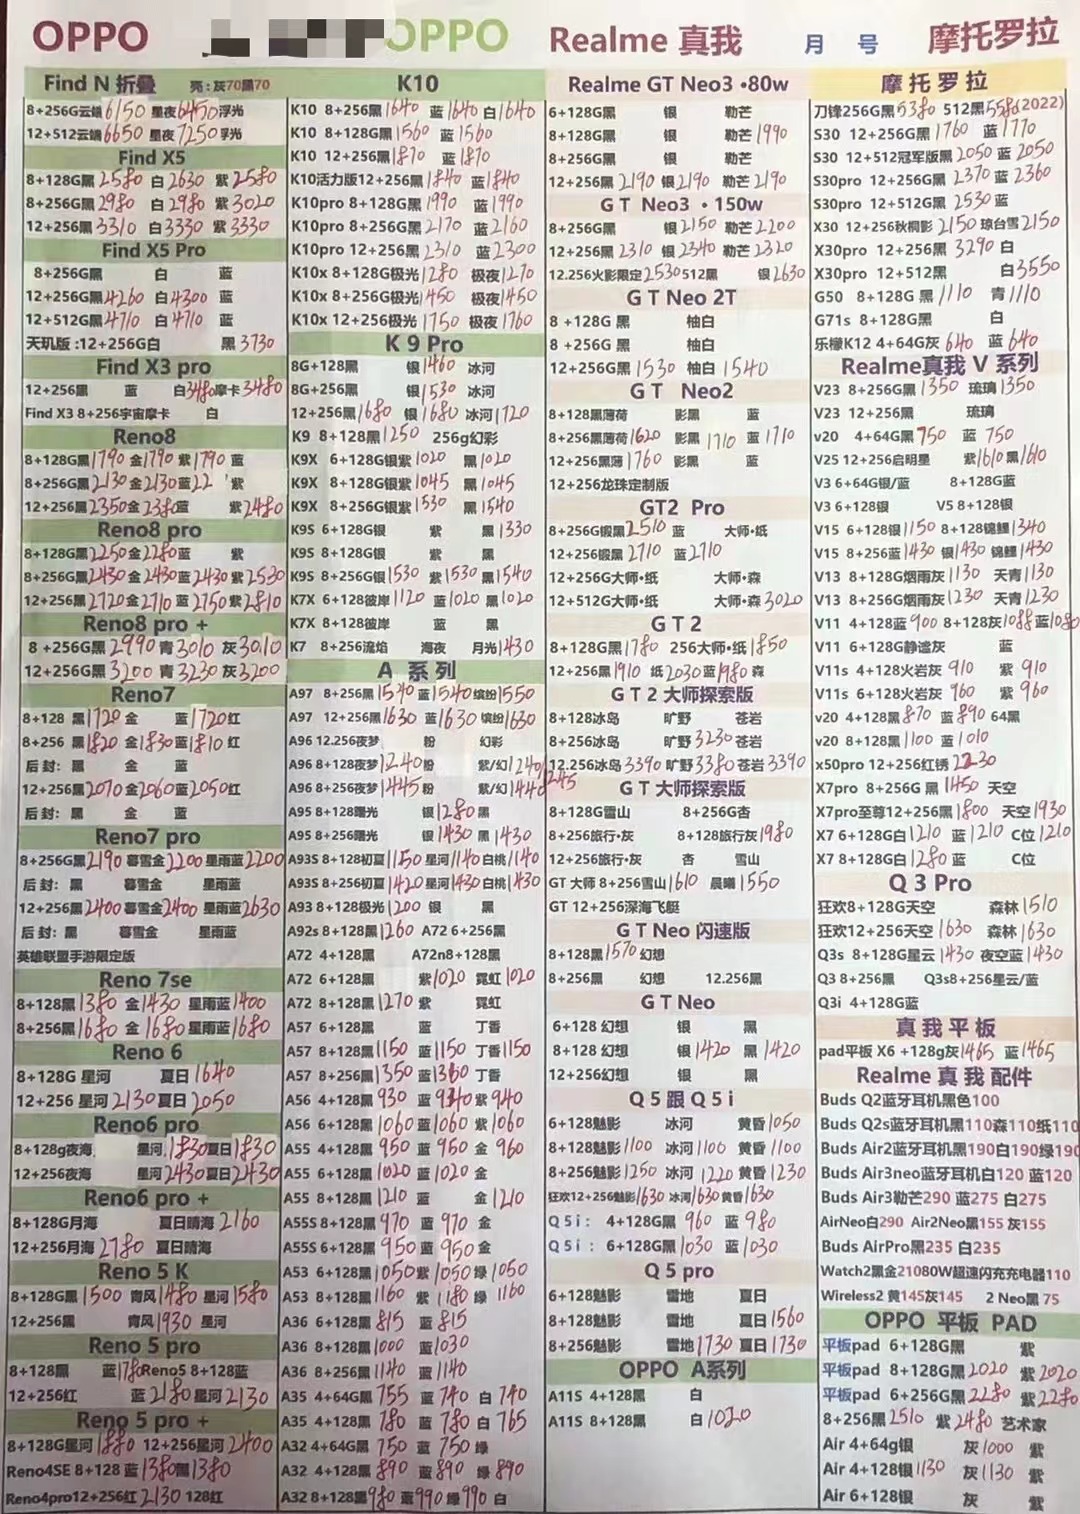 OPPO
OPPO
Realme 真我
月 号
摩托罗拉
Find N 折叠 亮:灰70黑70
8+256G云端6150 星夜6450浮光
12+512云端6650 星夜7250浮光
Find X5
8+128G黑2580 白2630 紫2580
8+256G黑2980 白2980 紫3020
12+256黑3310 白3330 紫3330
Find X5 Pro
8+256G黑 白 蓝
12+256G黑4260 白4300 蓝
12+512G黑4710 白4710 蓝
天玑版:12+256G白 黑3730
Find X3 pro
12+256黑 蓝 白3480摩卡3480
Find X3 8+256宇宙摩卡 白
Reno8
8+128G黑1790金1790紫1790蓝
8+256G黑2130金2130蓝22 紫
12+256黑2350金2380蓝 紫2480
Reno8 pro
8+128G黑2250金2280蓝 紫
8+256G黑2430金2430蓝2430紫2530
12+256黑2720金2710蓝2750紫2810
Reno8 pro +
8+256G黑2990青3010灰3010
12+256G黑3200青3230灰3200
Reno7
8+128 黑1720金 蓝1720红
8+256 黑1820金1830蓝1810红
后封: 黑 金 蓝
12+256黑2070金2060蓝2050红
后封: 黑 金 蓝
Reno7 pro
8+256G黑2190暮雪金2200星雨蓝2200
后封: 黑 暮雪金 星雨蓝
12+256黑2400暮雪金2400 星雨蓝2630
后封: 黑 暮雪金 星雨蓝
英雄联盟手游限定版
Reno 7se
8+128黑1380 金1430 星雨蓝1400
8+256黑1680 金1680星雨蓝1680
Reno 6
8+128G 星河 夏日1640
12+256 星河2130夏日2050
Reno6 pro
8+128g夜海 星河1830夏日1830
12+256夜海 星河2430夏日2430
Reno6 pro +
8+128G月海 夏日晴海2160
12+256月海2780 夏日晴海
Reno 5 K
8+128G黑1500 青风1480星河1580
12+256黑 青风1930星河
Reno 5 pro
8+128黑 蓝1780Reno5 8+128蓝
12+256红 蓝2180星河2130
Reno 5 pro +
8+128G星河1880 12+256星河2400
Reno4SE 8+128 蓝1380黑1380
Reno4pro12+256红2130 128红
K10
K10 8+256黑1640 蓝1640白1640
K10 8+128G黑1560 蓝1560
K10 12+256黑1870 蓝1870
K10活力版12+256黑1840 蓝1840
K10pro 8+128G黑1990 蓝1990
K10pro 8+256G黑2170 蓝2160
K10pro 12+256黑2310 蓝2300
K10x 8+128G极光1280 极夜1270
K10x 8+256G极光1450 极夜1450
K10x 12+256极光1750 极夜1760
K 9 Pro
8G+128黑 银1460 冰河
8G+256黑 银1530 冰河
12+256黑1680 银1680冰河1720
K9 8+128黑1250 256g幻彩
K9X 6+128G银紫1020 黑1020
K9X 8+128G银紫1045 黑1045
K9X 8+256G银紫1530 黑1540
K9S 6+128G银 紫 黑1330
K9S 8+128G银 紫 黑
K9S 8+256G银1530 紫1530黑1540
K7X 6+128彼岸1120 蓝1020黑1020
K7X 8+128彼岸 蓝 黑
K7 8+256流焰 海夜 月光1430
A 系列
A97 8+256黑1540蓝1540缤纷1550
A97 12+256黑1630蓝1630缤纷1630
A96 12.256夜梦 粉 幻彩
A96 8+128夜梦1240粉 紫/幻1240
A96 8+256夜梦1445粉 紫/幻1440 1245
A95 8+128曙光 银1280黑
A95 8+256曙光 银1430黑1430
A93S 8+128初夏1150星河1140白桃1140
A93S 8+256初夏1420星河1430白桃1430
A93 8+128极光1200 银 黑
A92s 8+128黑1260 A72 6+256黑
A72 4+128黑 A72n8+128黑
A72 6+128黑 紫1020 霓虹1020
A72 8+128黑1270 紫 霓虹
A57 6+128黑 蓝 丁香
A57 8+128黑1150 蓝1150丁香1150
A57 8+256黑1350蓝1360丁香
A56 4+128黑930 蓝940紫940
A56 6+128黑1060蓝1060紫1060
A55 4+128黑950 蓝950 金960
A55 6+128黑1020 蓝1020 金
A55 8+128黑1210 蓝 金1210
A55S 8+128黑970 蓝970 金
A55S 6+128黑950蓝950金
A53 6+128黑1050紫1050绿1050
A53 8+128黑1160 紫1180绿1160
A36 6+128黑815 蓝815
A36 8+128黑1000 蓝1030
A36 8+256黑1140 蓝1140
A35 4+64G黑755 蓝740 白740
A35 4+128黑780 蓝780白765
A32 4+64G黑750 蓝750绿
A32 4+128黑890 蓝890 绿890
A32 8+128黑980蓝990绿990白
Realme GT Neo3 •80w
6+128G黑 银 勒芒
8+128G黑 银 勒芒1990
8+256G黑 银 勒芒
12+256黑2190银2190 勒芒2190
G T Neo3 • 150w
8+256G黑 银2150勒芒2200
12+256黑2310银2340勒芒2320
12.256火影限定2530512黑 银2630
G T Neo 2T
8 +128G 黑 柚白
8 +256G 黑 柚白
12+256G黑1530 柚白1540
G T Neo2
8+128黑薄荷 影黑 蓝
8+256黑薄荷1620 影黑1710 蓝1710
12+256黑薄1760 影黑 蓝
12+256龙珠定制版
GT2 Pro
8+256G缎黑2510 蓝 大师•纸
12+256缎黑2710 蓝2710
12+256G大师•纸 大师•森
12+512G大师•纸 大师•森3020
G T 2
8+128G黑1780 256大师•纸1850
12+256黑1910 纸2030蓝1980森
G T 2 大师探索版
8+128冰岛 旷野 苍岩
8+256冰岛 旷野3230苍岩
12.256冰岛3390旷野3380苍岩3390
G T 大师探索版
8+128G雷山 8+256G杏
8+256旅行•灰 8+128旅行灰1980
12+256旅行•灰 杏 雪山
GT 大师 8+256雪山1610 晨曦1550
GT 12+256深海飞艇
G T Neo 闪速版
8+128黑1570幻想
8+256黑 幻想 12.256黑
G T Neo
6+128 幻想 银 黑
8+128 幻想 银1420 黑1420
12+256幻想 银 黑
Q 5 跟 Q 5 i
6+128魅影 冰河 黄昏1050
8+128魅影1100 冰河1100 黄昏1100
8+256魅影1250 冰河1220黄昏1230
狂欢12+256魅影1630冰河1630黄昏1630
Q 5 i : 4+128G黑960 蓝980
Q 5 i : 6+128G黑1030 蓝1030
Q 5 pro
6+128魅影 雪地 夏日
8+128魅影 雪地 夏日1560
8+256魅影 雪地1730夏日1730
OPPO A系列
A11S 4+128黑 白
A11S 8+128黑 白1020
摩 托 罗 拉
刀锋256G黑5380 512黑5580(2022)
S30 12+256G黑1760 蓝1770
S30 12+512冠军版黑2050蓝2050
S30pro 12+256G黑2370蓝2360
S30pro 12+512G黑2530蓝
X30 12+256秋桐影2150琼台雪2150
X30pro 12+256黑3290白
X30pro 12+512黑 白3550
G50 8+128G黑1110 青1110
G71s 8+128G黑 白
乐檬K12 4+64G灰640 蓝640
Realme真我 V 系列
V23 8+256G黑1350琉璃1350
V23 12+256黑 琉璃
v20 4+64G黑750 蓝750
V25 12+256启明星 紫1610黑1610
V3 6+64G银/蓝 8+128G蓝
V3 6+128银 V5 8+128银
V15 6+128银1150 8+128锦鲤1340
V15 8+256蓝1430 银1430锦鲤1430
V13 8+128G烟雨灰1130 天青1130
V13 8+256G烟雨灰1230 天青1230
V11 4+128蓝900 8+128灰1088蓝1080
V11 6+128G静谧灰 蓝
V11s 4+128火岩灰910 紫910
V11s 6+128火岩灰960 紫960
v20 4+128黑870 蓝890 64黑
v20 8+128黑1100 蓝1010
x50pro 12+256红锈2230
X7pro 8+256G 黑1450 天空
X7pro至尊12+256黑1800 天空1930
X7 6+128G白1210 蓝1210 C位1210
X7 8+128G白1280蓝 C位
Q 3 Pro
狂欢8+128G天空 森林1510
狂欢12+256天空1630 森林1630
Q3s 8+128G星云1430夜空蓝1430
Q3 8+256黑 Q3s8+256星云/蓝
Q3i 4+128G蓝
真 我 平 板
pad平板 X6 +128g灰1465 蓝1465
Realme 真 我 配件
Buds Q2蓝牙耳机黑色100
Buds Q2s蓝牙耳机黑110森110纸110
Buds Air2蓝牙耳机黑190白190绿190
Buds Air3neo蓝牙耳机白120 蓝120
Buds Air3勒芒290 蓝275 白275
AirNeo白290 Air2Neo黑155 灰155
Buds AirPro黑235 白235
Watch2黑金21080W超速闪充充电器110
Wireless2 黄145灰145 2 Neo黑 75
OPPO 平板 PAD
平板pad 6+128G黑 紫
平板pad 8+128G黑2020 紫2020
平板pad 6+256G黑2280紫2280
8+256黑2510 紫2480 艺术家
Air 4+64g银 灰1000 紫
Air 4+128银1130 灰1130 紫
Air 6+128银 灰 紫